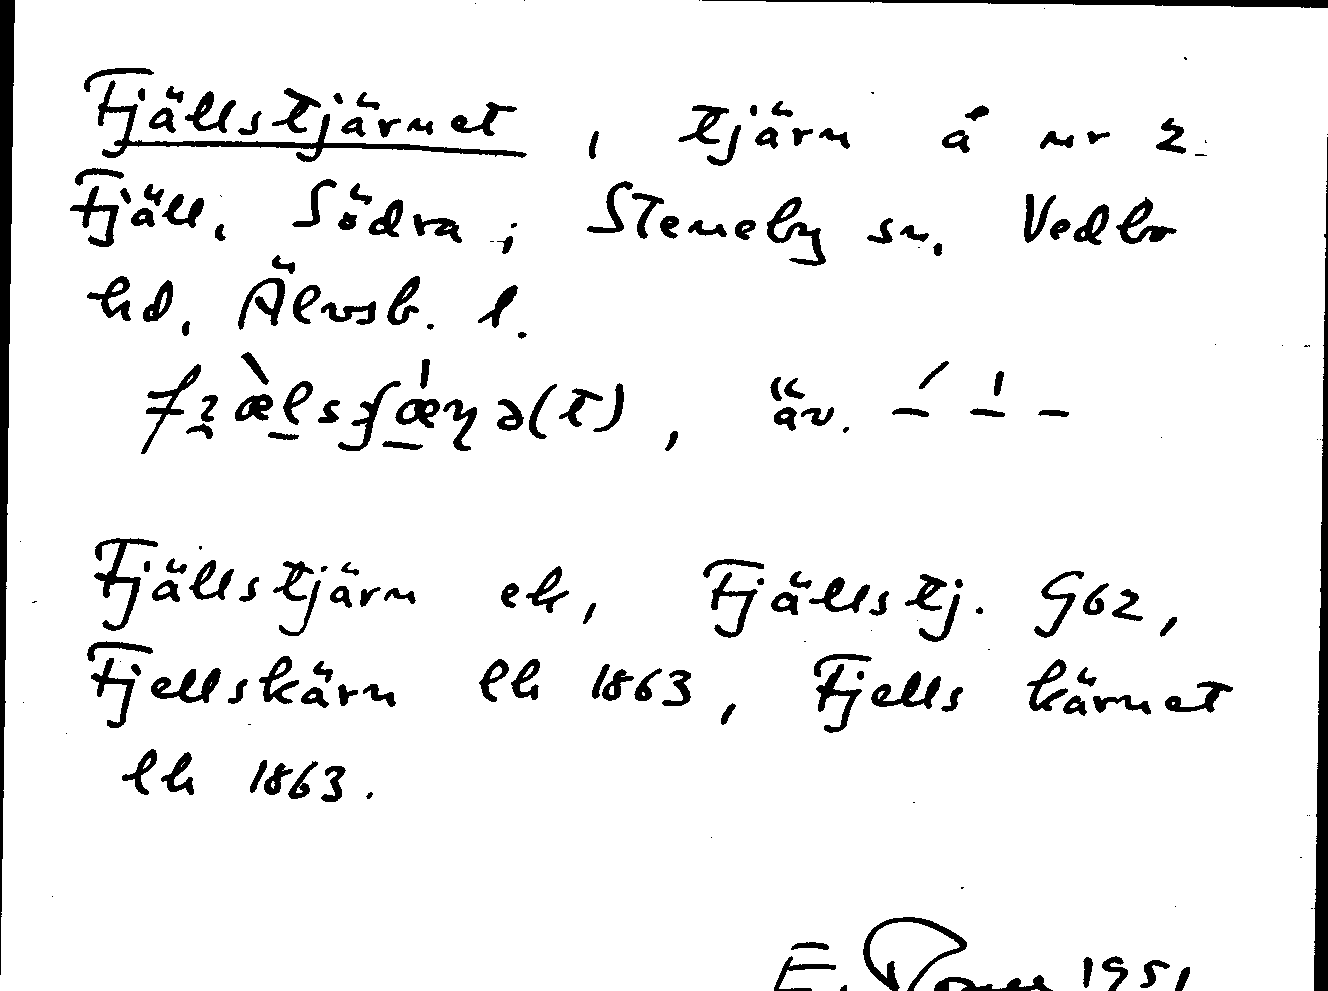 Fjällstjärnet, tjärn å nr 2
Fjäll, Södra; Steneby sn, Vedbo
hd, Älvsb. l.
äv.
Fjällstjärn ek, Fjällstj. G62,
Fjellskärn lh 1863, Fjells kärnet
lh 1863.
E. 1951